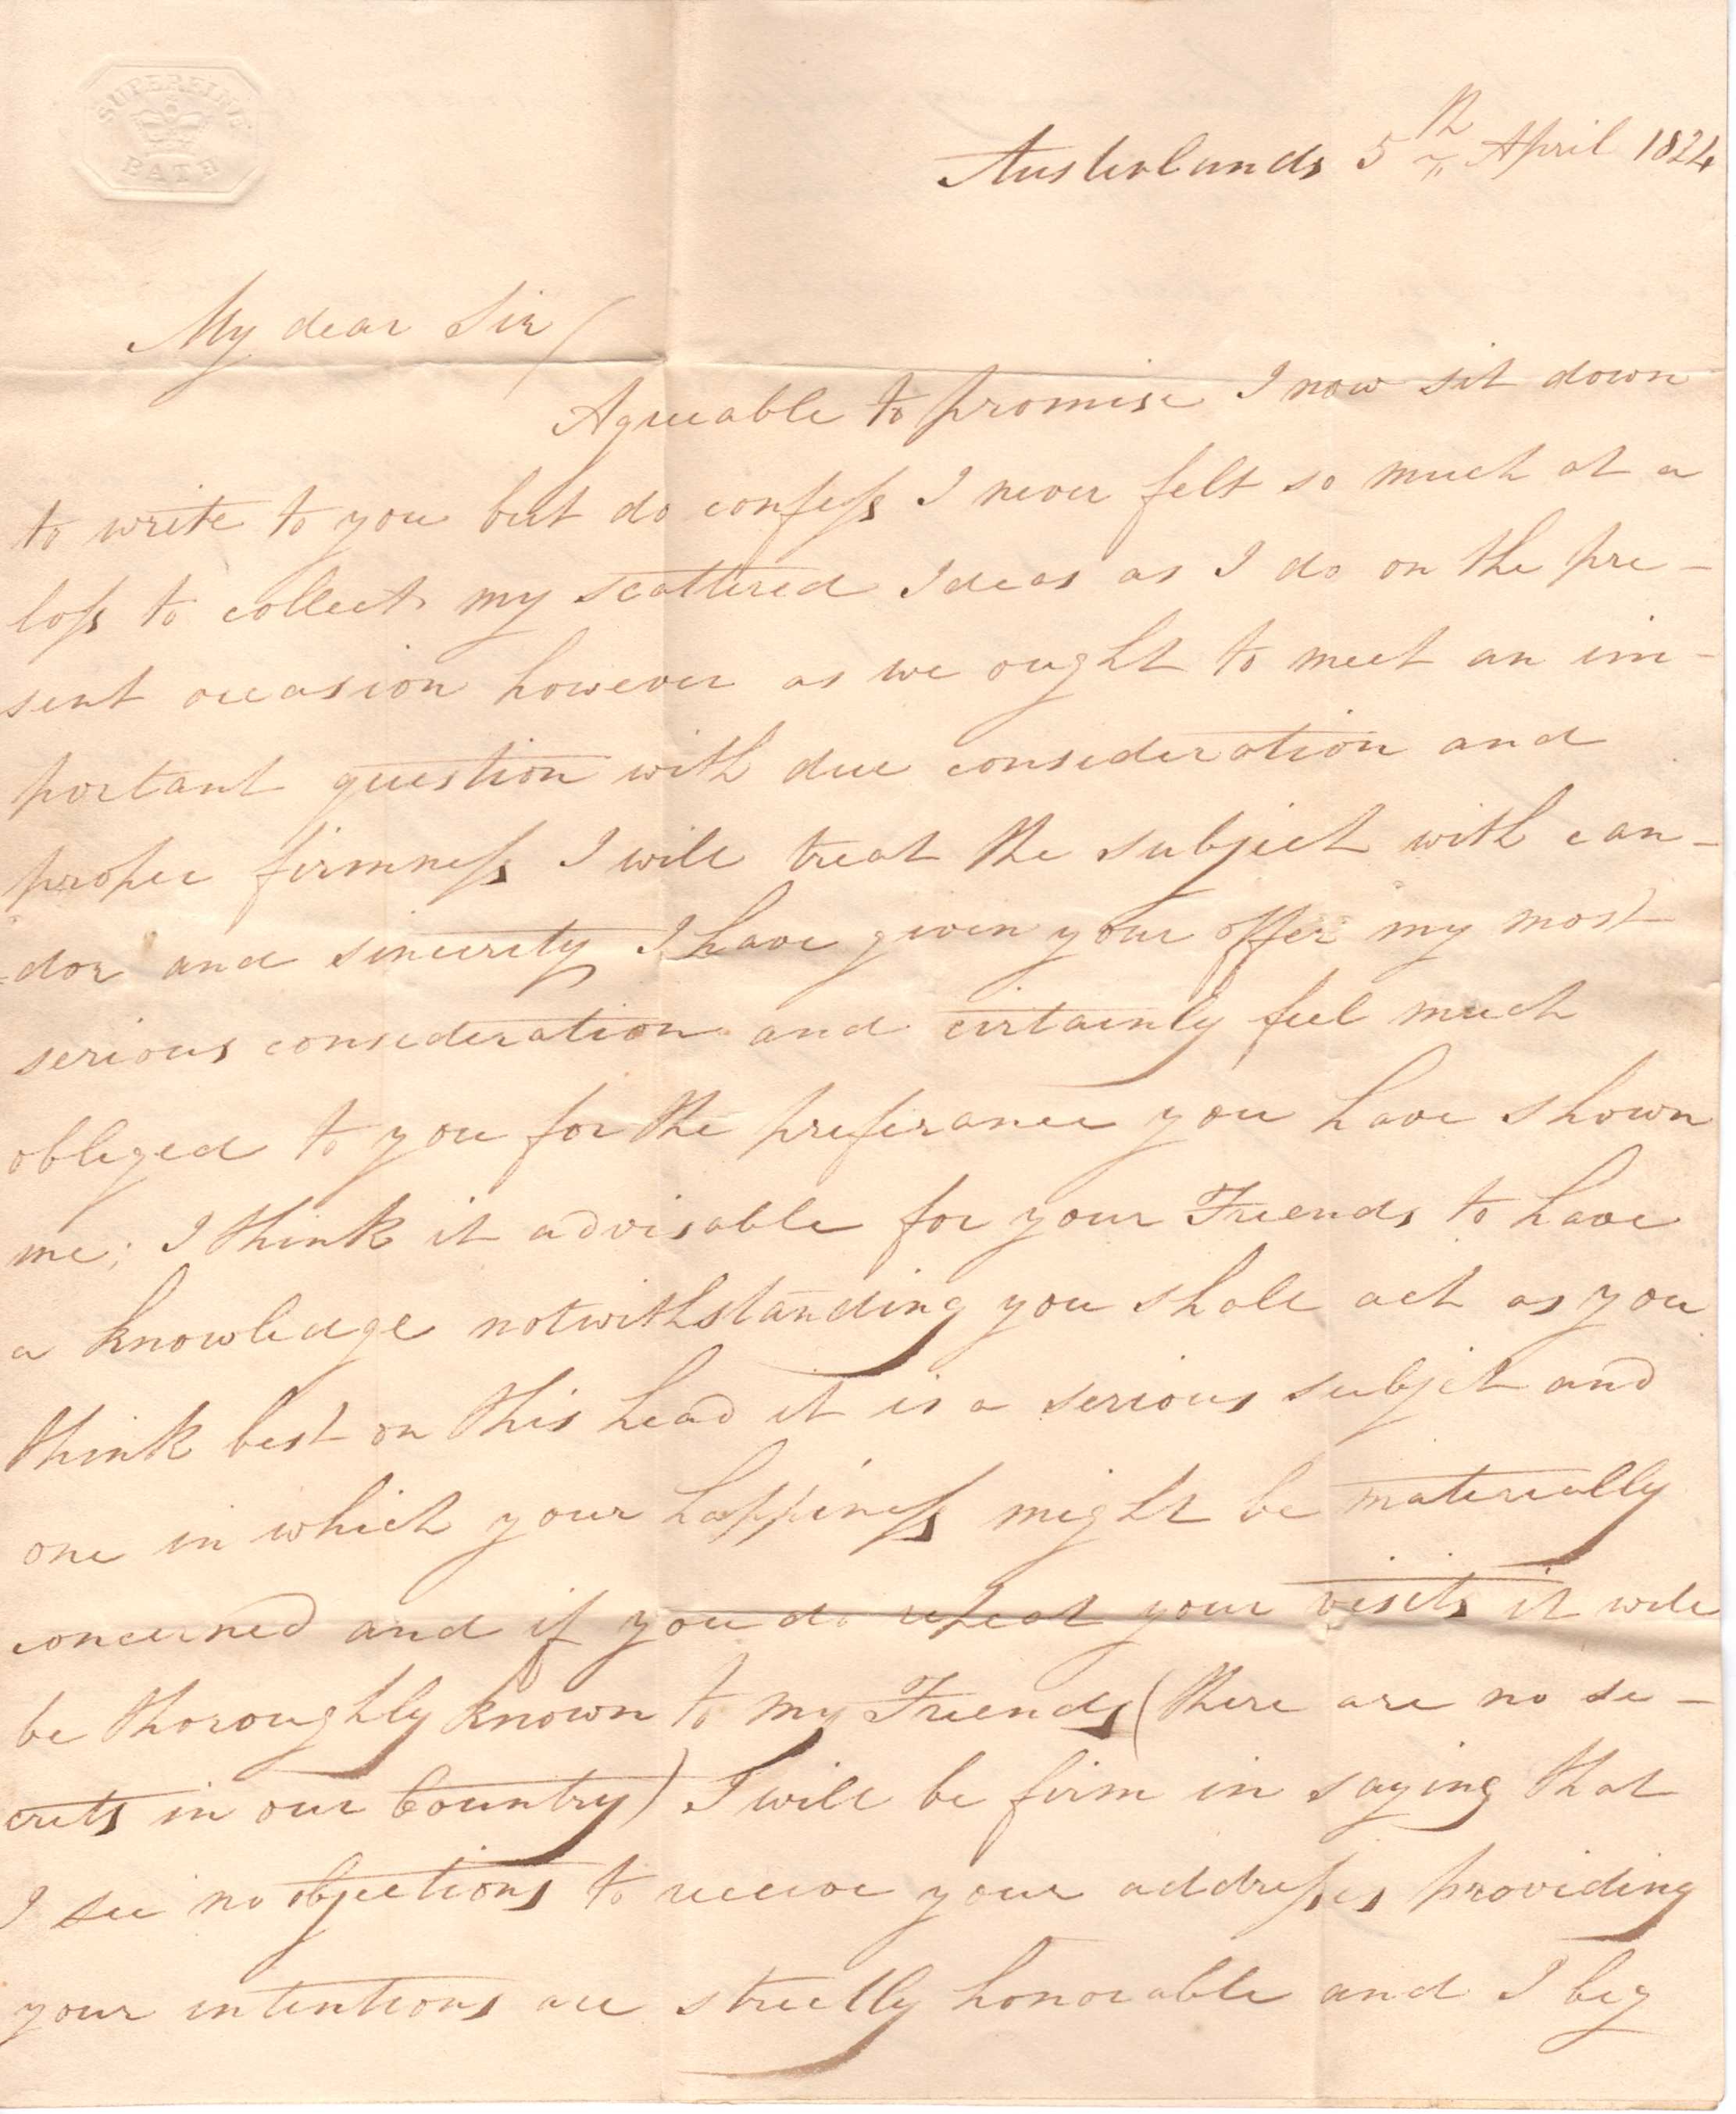 SUPERFINE
BATH
Austerlands 5th April 1824
My dear Sir/
Agreeable to promise I now sit down
to write to you but do confess I never felt so much at a
loss to collect my scattered Ideas as I do on the pre-
sent occasion however as we ought to meet an im-
portant question with due consideration and
proper firmness I will treat the subject with can-
=dor and sincerity I have given your offer my most
serious consideration and certainly feel much
obliged to you for the preferance you have shown
me; I think it advisable for your Friends to have
a knowledge notwithstanding you shall act as you
think best on this head it is a serious subject and
one in which your happiness might be materially
concerned and if you do repeat your visits it will
be thoroughly known to my Friends (there are no se-
crets in our Country) I will be firm in saying that
I see no objections to receive your addresses providing
your intentions are strictly honorable and I beg